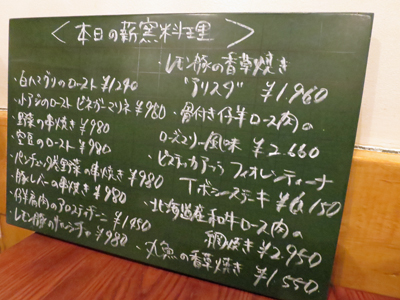 〈本日の薪窯料理〉
・白ハマグリのロースト ¥1290
・小アジのロースト ビネガーマリネ ¥980
・野菜の串焼き ¥980
・空豆のロースト ¥980
・パンチェッタ巻野菜の串焼き ¥980
・豚レバーの串焼き ¥980
・仔羊肉のアロスティチーニ ¥1450
・レモン豚の ¥980
・レモン豚の香草焼き
"アリスタ" ¥1,960
・骨付き仔羊ロース肉の
ローズマリー風味 ¥2,660
・ビステッカ アッラ フィオレンティーナ
Tボーンステーキ ¥6,150
・北海道産和牛ロース肉の
網焼き ¥2,950
・丸魚の香草焼き
¥1550